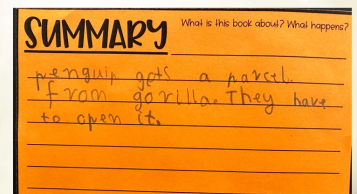 SUMMARY What is this book about? What happens?
penguin gets a parcel.
from gorilla. They have
to open it.